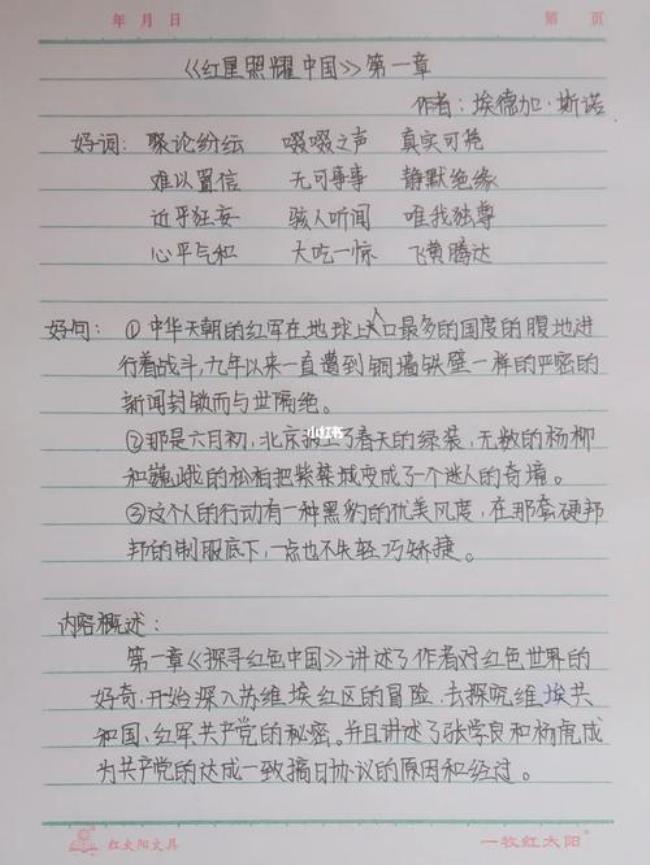 年 月 日 第 页
《红星照耀中国》第一章
作者：埃德加·斯诺
好词： 聚论纷纭 啜啜之声 真实可挽
难以置信 无可事事 静默绝缘
近乎狂妄 骇人听闻 唯我独尊
心平气和 大吃一惊 飞黄腾达
好句： ①中华天朝的红军在地球上人口最多的国度的腹地进
行着战斗,九年以来一直遭到铜墙铁壁一样的严密的
新闻封锁而与世隔绝。
小红书
②那是六月初,北京披上了春天的绿装,无数的杨柳
和巍峨的松柏把紫禁城变成了一个迷人的奇境。
③这个人的行动有一种黑豹的优美风度,在那套硬邦
邦的制服底下,一点也不失轻巧矫捷。
内容概述：
第一章《探寻红色中国》讲述了作者对红色世界的
好奇,开始深入苏维埃红区的冒险,去探究维埃共
和国、红军共产党的秘密。并且讲述了张学良和杨虎成
为共产党的达成一致搞日协议的原因和经过。
红太阳文具 一枚红太阳